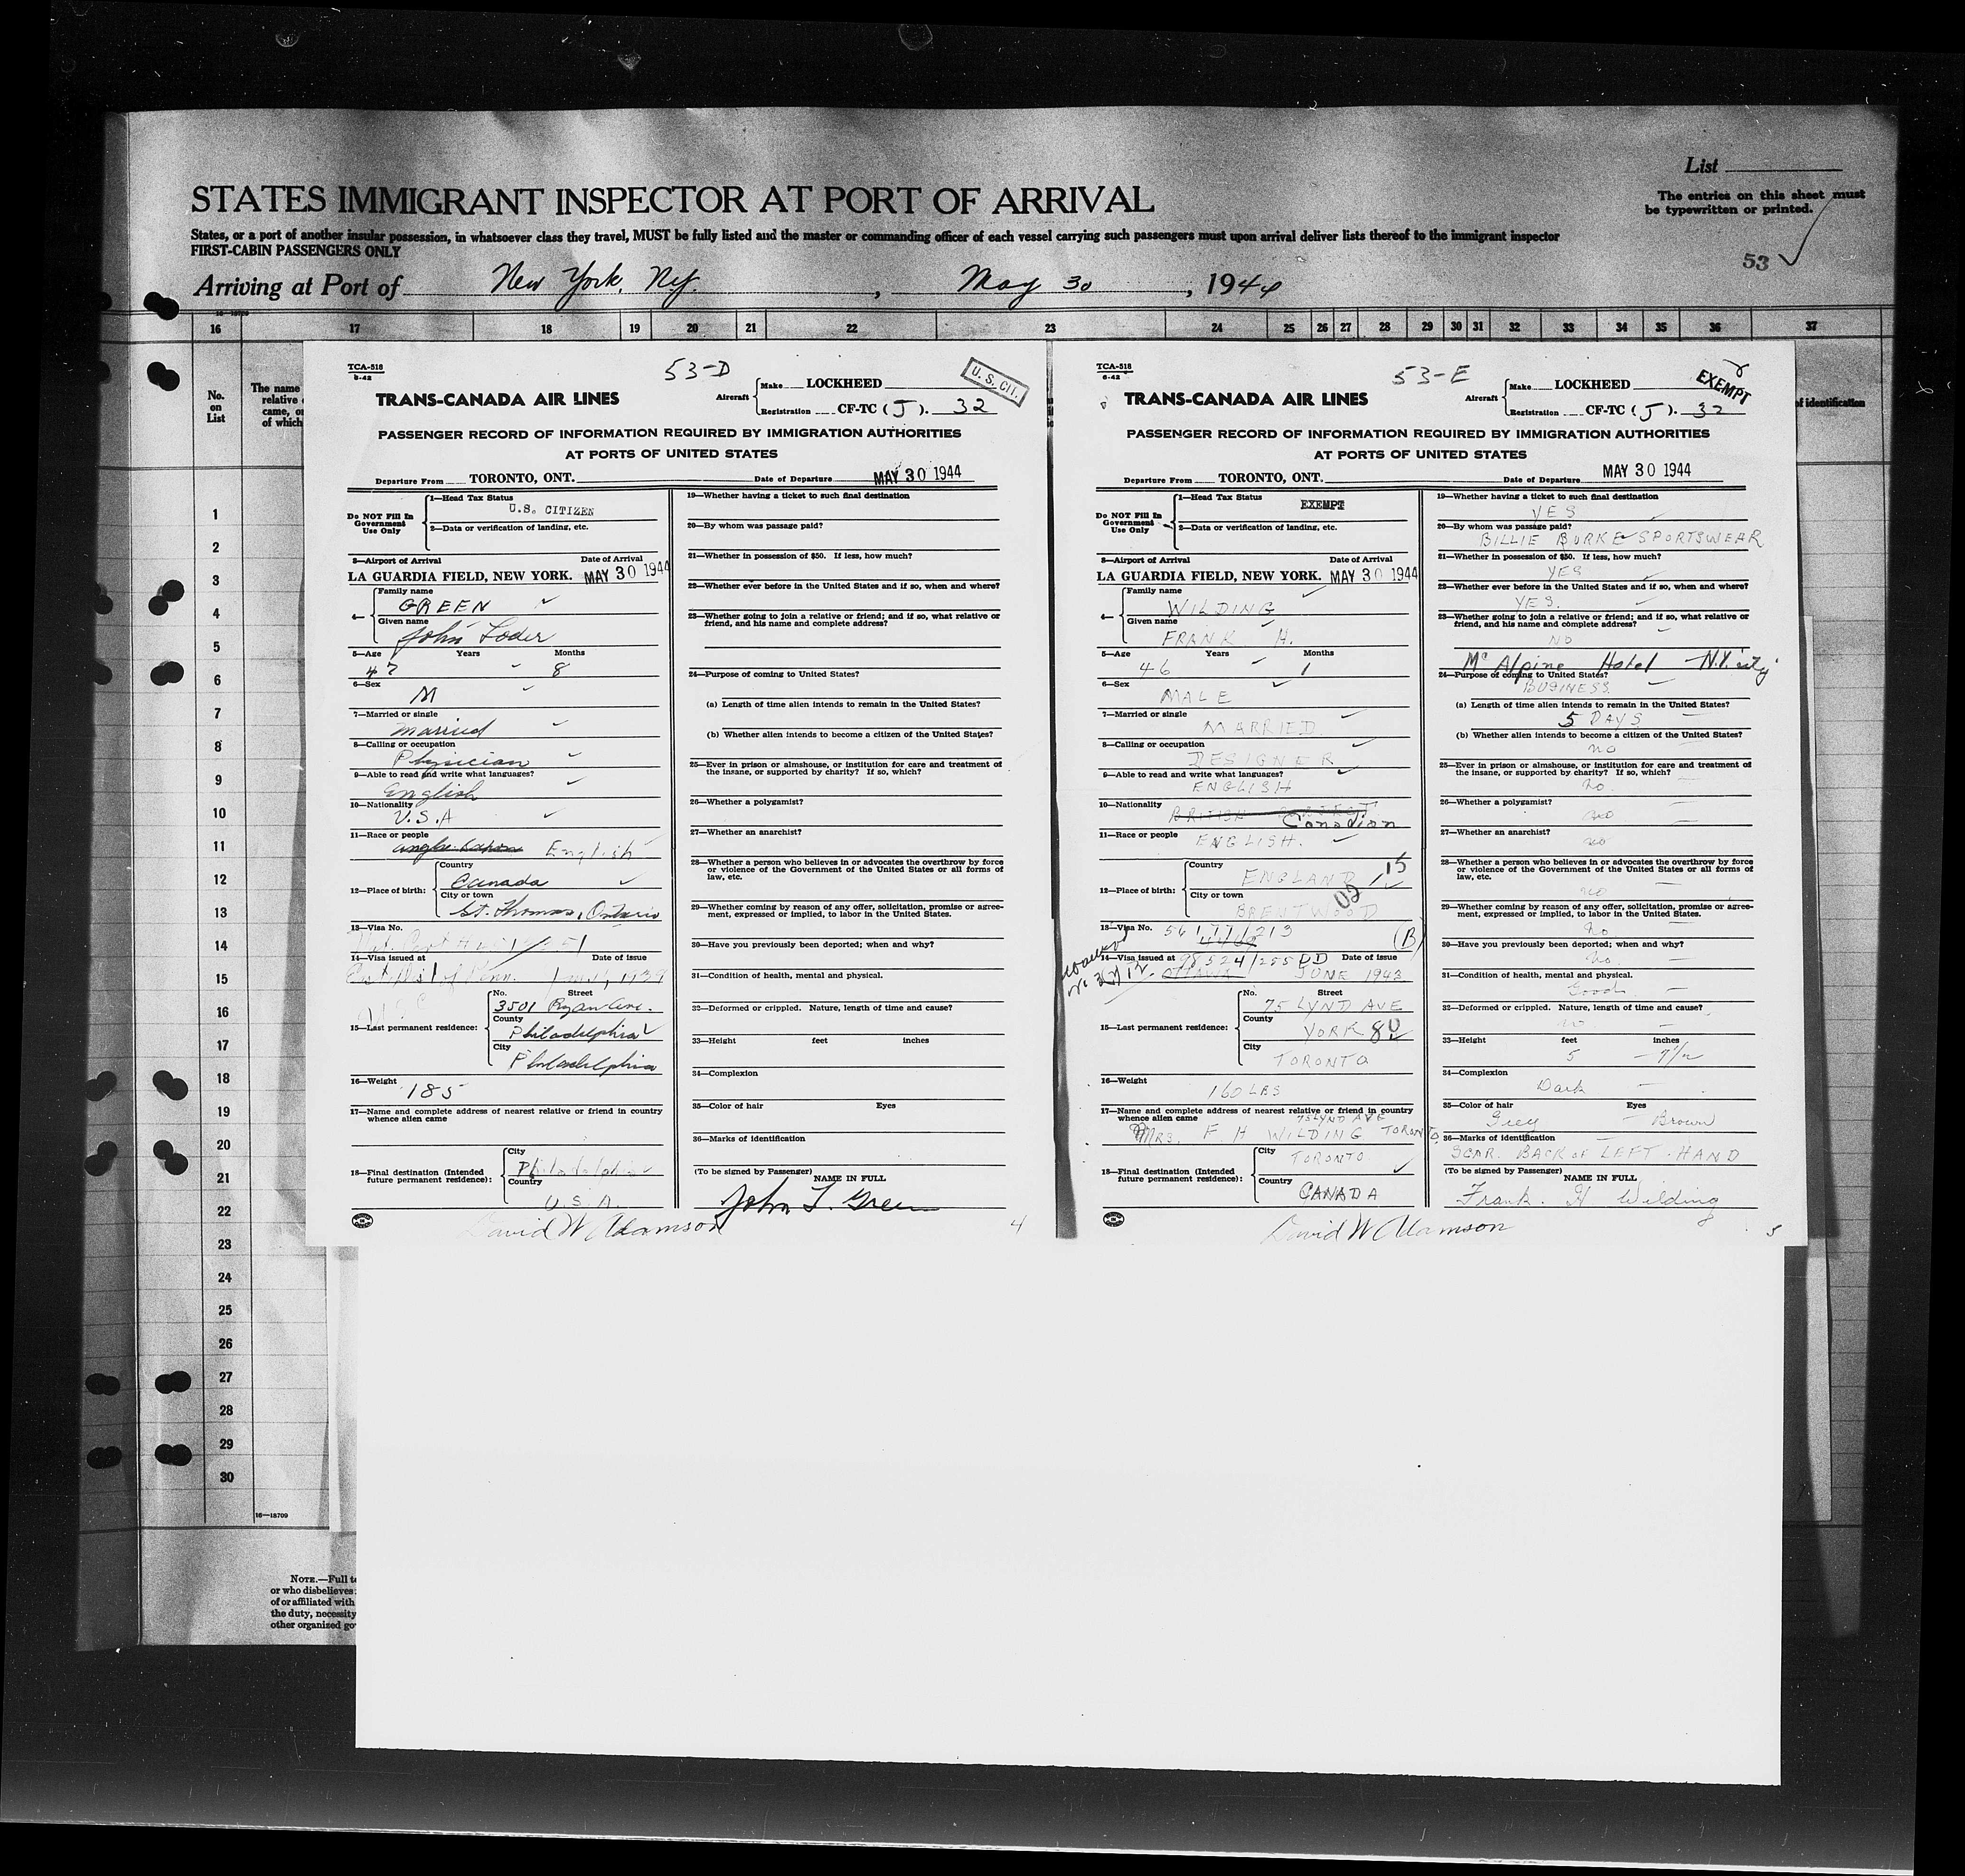 List
STATES IMMIGRANT INSPECTOR AT PORT OF ARRIVAL
The entries on this sheet must
be typewritten or printed.
States, or a port of another insular possession, in whatsoever class they travel, MUST be fully listed and the master or commanding officer of each vessel carrying such passengers must upon arrival deliver lists thereof to the immigrant inspector
FIRST-CABIN PASSENGERS ONLY
53
Arriving at Port of New York, N.Y. , May 30 , 1944
16 17 18 19 20 21 22 23 24 25 26 27 28 29 30 31 32 33 34 35 36 37
No.
on
List
The name
relative
came, or
of which
of identification
1
2
3
4
5
6
7
8
9
10
11
12
13
14
15
16
17
18
19
20
21
22
23
24
25
26
27
28
29
30
16—18709
NOTE.—Full te
or who disbelieves
of or affiliated with
the duty, necessity
other organized go
TCA-518
6-42
53-D
U.S. CIT.
TRANS-CANADA AIR LINES
Aircraft
Make LOCKHEED
Registration CF-TC (J). 32
PASSENGER RECORD OF INFORMATION REQUIRED BY IMMIGRATION AUTHORITIES
AT PORTS OF UNITED STATES
Departure From TORONTO, ONT. Date of Departure MAY 30 1944
Do NOT Fill In
Government
Use Only
1—Head Tax Status
U.S. CITIZEN
2—Data or verification of landing, etc.
3—Airport of Arrival Date of Arrival
LA GUARDIA FIELD, NEW YORK. MAY 30 1944
4—
Family name
GREEN
Given name
John Loder
5—Age Years Months
47 8
6—Sex
M
7—Married or single
Married
8—Calling or occupation
Physician
9—Able to read and write what languages?
English
10—Nationality
U.S.A
11—Race or people
Anglo-Saxon English
12—Place of birth:
Country
Canada
City or town
St. Thomas, Ontario
13—Visa No.
14—Visa issued at Date of issue
15—Last permanent residence:
No. Street
3501 Ryan Ave.
County
Philadelphia
City
Philadelphia
16—Weight
185
17—Name and complete address of nearest relative or friend in country
whence alien came
18—Final destination (Intended
future permanent residence):
City
Philadelphia
Country
U.S.A.
19—Whether having a ticket to such final destination
20—By whom was passage paid?
21—Whether in possession of $50. If less, how much?
22—Whether ever before in the United States and if so, when and where?
23—Whether going to join a relative or friend; and if so, what relative or
friend, and his name and complete address?
24—Purpose of coming to United States?
(a) Length of time alien intends to remain in the United States?
(b) Whether alien intends to become a citizen of the United States?
25—Ever in prison or almshouse, or institution for care and treatment of
the insane, or supported by charity? If so, which?
26—Whether a polygamist?
27—Whether an anarchist?
28—Whether a person who believes in or advocates the overthrow by force
or violence of the Government of the United States or all forms of
law, etc.
29—Whether coming by reason of any offer, solicitation, promise or agree-
ment, expressed or implied, to labor in the United States.
30—Have you previously been deported; when and why?
31—Condition of health, mental and physical.
32—Deformed or crippled. Nature, length of time and cause?
33—Height feet inches
34—Complexion
35—Color of hair Eyes
36—Marks of identification
(To be signed by Passenger)
NAME IN FULL
John L. Green
David W Adamson
4
TCA-518
6-42
53-E
EXEMPT
TRANS-CANADA AIR LINES
Aircraft
Make LOCKHEED
Registration CF-TC (J). 32
PASSENGER RECORD OF INFORMATION REQUIRED BY IMMIGRATION AUTHORITIES
AT PORTS OF UNITED STATES
Departure From TORONTO, ONT. Date of Departure MAY 30 1944
Do NOT Fill In
Government
Use Only
1—Head Tax Status
EXEMPT
2—Data or verification of landing, etc.
3—Airport of Arrival Date of Arrival
LA GUARDIA FIELD, NEW YORK. MAY 30 1944
4—
Family name
WILDING
Given name
FRANK H.
5—Age Years Months
46 1
6—Sex
MALE
7—Married or single
MARRIED
8—Calling or occupation
DESIGNER
9—Able to read and write what languages?
ENGLISH
10—Nationality
BRITISH SUBJECT
Canadian
11—Race or people
ENGLISH.
12—Place of birth:
Country
ENGLAND 15
City or town
BRENTWOOD
13—Visa No. 561771/213
(B)
14—Visa issued at 98524/255 DD Date of issue
OTTAWA JUNE 1943
15—Last permanent residence:
No. Street
75 LYND AVE
County
YORK 80
City
TORONTO
16—Weight
160 LBS
17—Name and complete address of nearest relative or friend in country
whence alien came 75 LYND AVE
MRS. F H WILDING TORONTO.
18—Final destination (Intended
future permanent residence):
City
TORONTO
Country
CANADA
19—Whether having a ticket to such final destination
YES
20—By whom was passage paid?
BILLIE BURKE SPORTSWEAR
21—Whether in possession of $50. If less, how much?
YES
22—Whether ever before in the United States and if so, when and where?
YES.
23—Whether going to join a relative or friend; and if so, what relative or
friend, and his name and complete address?
NO
McAlpine Hotel N.Y. city
24—Purpose of coming to United States?
BUSINESS.
(a) Length of time alien intends to remain in the United States?
5 DAYS
(b) Whether alien intends to become a citizen of the United States?
no
25—Ever in prison or almshouse, or institution for care and treatment of
the insane, or supported by charity? If so, which?
no.
26—Whether a polygamist?
no
27—Whether an anarchist?
no
28—Whether a person who believes in or advocates the overthrow by force
or violence of the Government of the United States or all forms of
law, etc.
no
29—Whether coming by reason of any offer, solicitation, promise or agree-
ment, expressed or implied, to labor in the United States.
No
30—Have you previously been deported; when and why?
No.
31—Condition of health, mental and physical.
Good
32—Deformed or crippled. Nature, length of time and cause?
no
33—Height feet inches
5 7 1/2
34—Complexion
Dark
35—Color of hair Eyes
Grey Brown
36—Marks of identification
SCAR. BACK OF LEFT. HAND
(To be signed by Passenger)
NAME IN FULL
Frank. H Wilding
David W Adamson
5